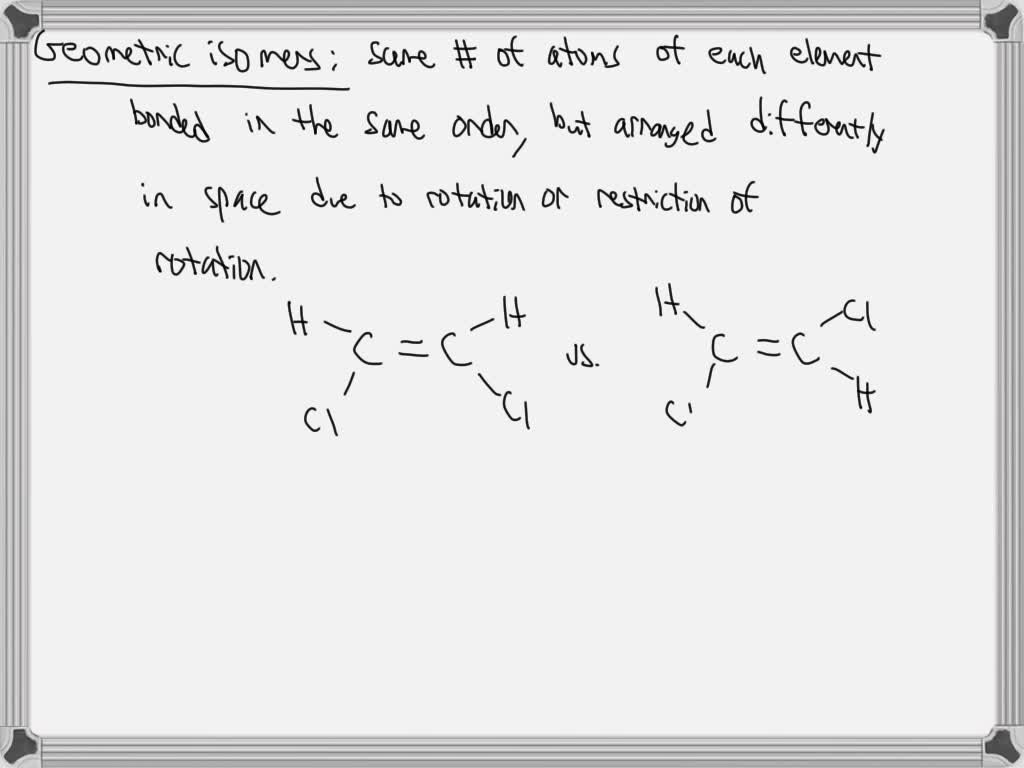 Geometric isomers: same # of atoms of each element
bonded in the same order, but arranged differently
in space due to rotation or restriction of
rotation.
H H H Cl
C = C vs. C = C
Cl Cl Cl H